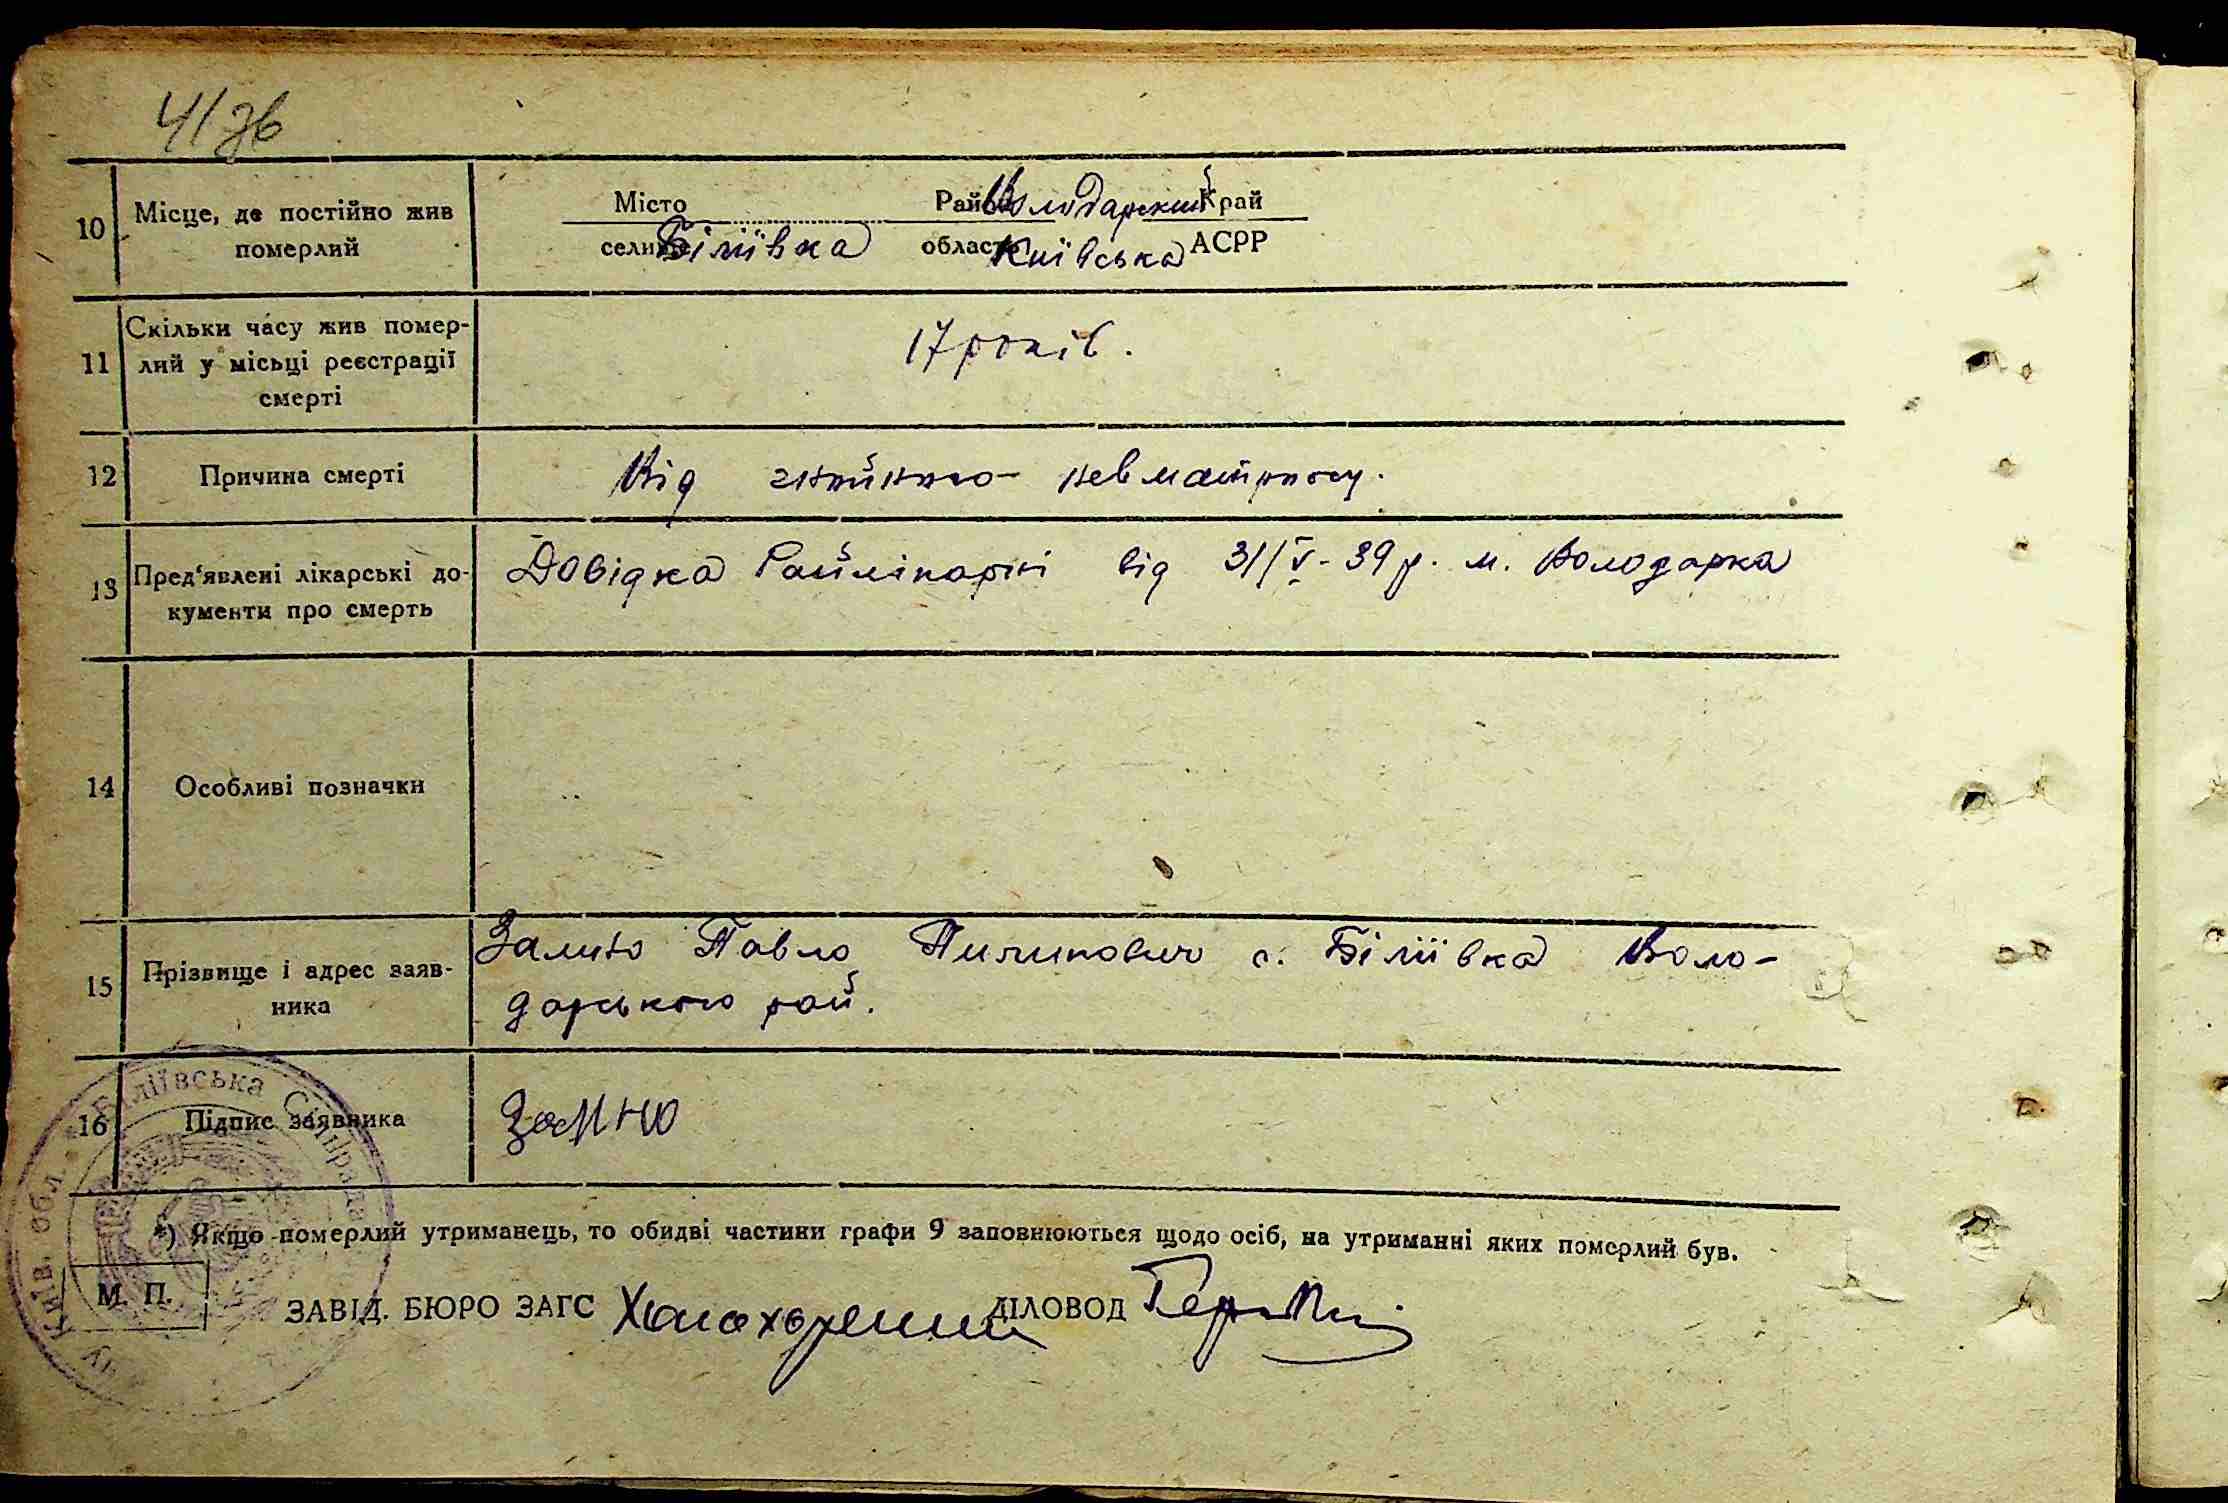 41 зв
10
Місце, де постійно жив
померлий
Місто
Район Володарский Край
селище Біліївка
область Київська АСРР
11
Скільки часу жив помер-
лий у місьці реєстрації
смерті
17 років.
12
Причина смерті
Від гнійного
13
Пред'явлені лікарські до-
кументи про смерть
Довідка Райлікарні від 31/V-39 р. м. Володарка
14
Особливі позначки
15
Прізвище і адрес заяв-
ника
Павло Пилипович с. Біліївка Воло-
дарського рай.
16
Підпис заявника
*) Якщо померлий утриманець, то обидві частини графи 9 заповнюються щодо осіб, на утриманні яких померлий був.
М. П.
ЗАВІД. БЮРО ЗАГС
ДІЛОВОД
Біліївська Сільрада
Київ. обл.